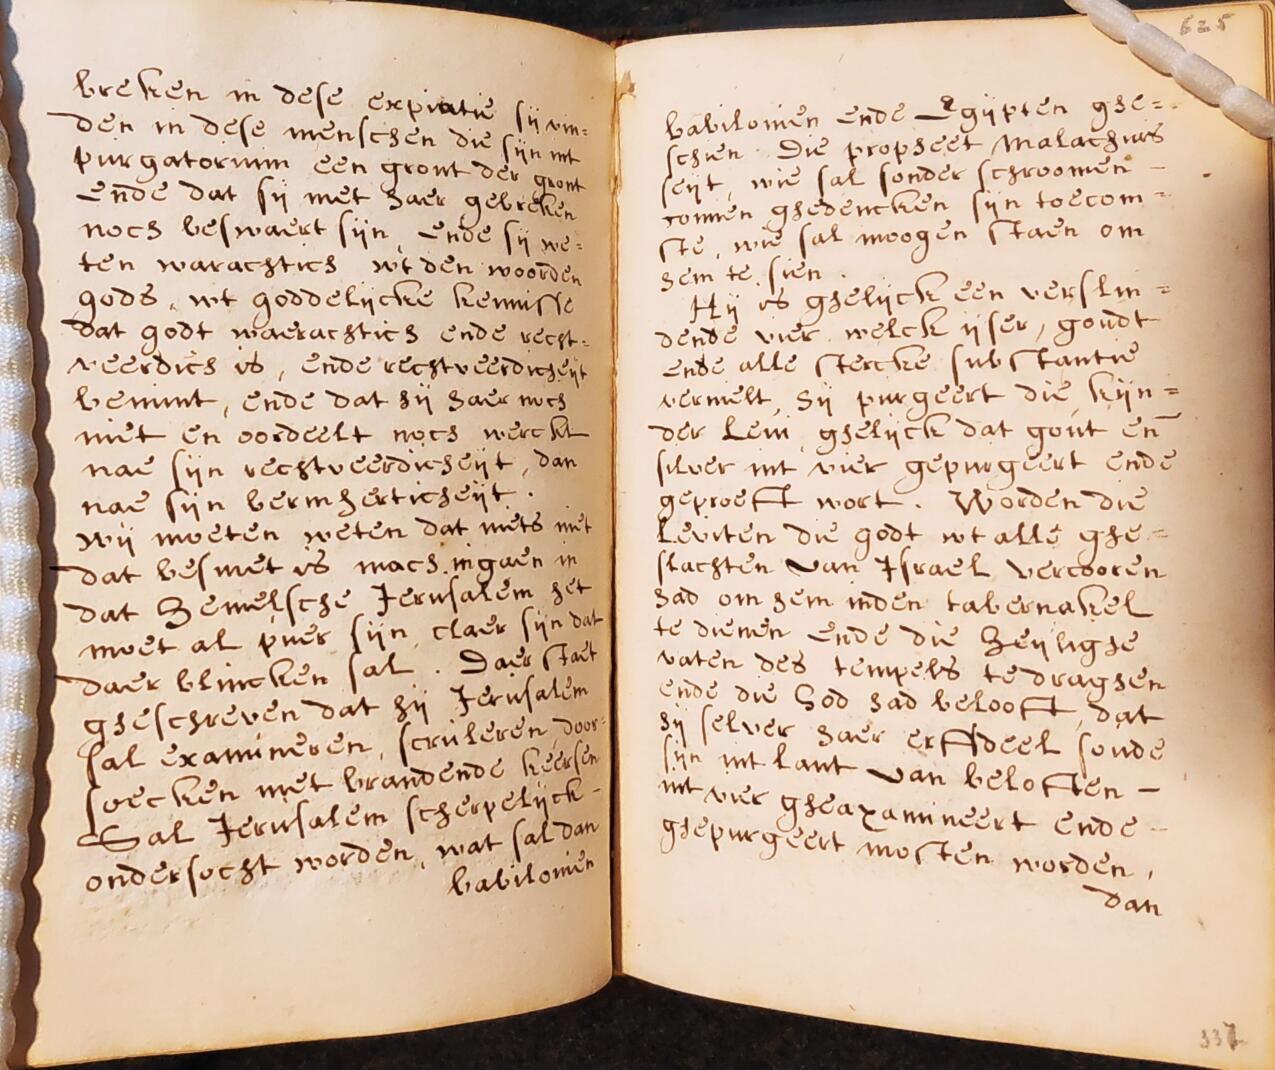 breken in dese expiatie sij vin=
den in dese menschen die sijn int
purgatorium een gront der gront
ende dat sij met haer gebreken
noch beswaert sijn, ende sij we=
ten warachtich wt den woorden
gods, wt goddelijcke kennisse
dat godt waerachtich ende recht=
veerdich is, ende rechtveerdicheijt
bemint, ende dat hij haer noch
niet en oordeelt noch werckt
nae sijn rechtveerdicheijt, dan
nae sijn bermherticheijt.
wij moeten weten dat niets niet
dat besmet is mach ingaen in
dat Hemelsche Jerusalem het
moet al puer sijn, claer sijn dat
daer blincken sal. Daer staet
gheschreven dat hij Jerusalem
sal examineren, scruteren, door=
soecken met brandende keersen
Sal Jerusalem scherpelijck-
ondersocht worden, wat sal dan
babilonien
625
babilonien ende Egijpten ghe=
schien. Die propheet Malachias
seijt, wie sal sonder schroomen -
connen ghedencken sijn toecom=
ste, wie sal moogen staen om
hem te sien.
Hij is ghelijck een verslin=
dende vier, welck ijser, goudt
ende alle stercke substantie
vernielt, hij purgeert die kijn=
der Levi, ghelijck dat gout en̄
silver int vier gepurgeert ende
geproeft wort. Worden die
Leviten die godt wt alle ghe=
slachten van Israel vercooren
had om hem inden tabernakel
te dienen ende die Heijlighe
vaten des tempels te draghen
ende die God had belooft, dat
hij selver haer erffdeel soude
sijn int lant van beloften -
int vier gheaxamineert ende -
ghepurgeert mosten worden,
dan
337